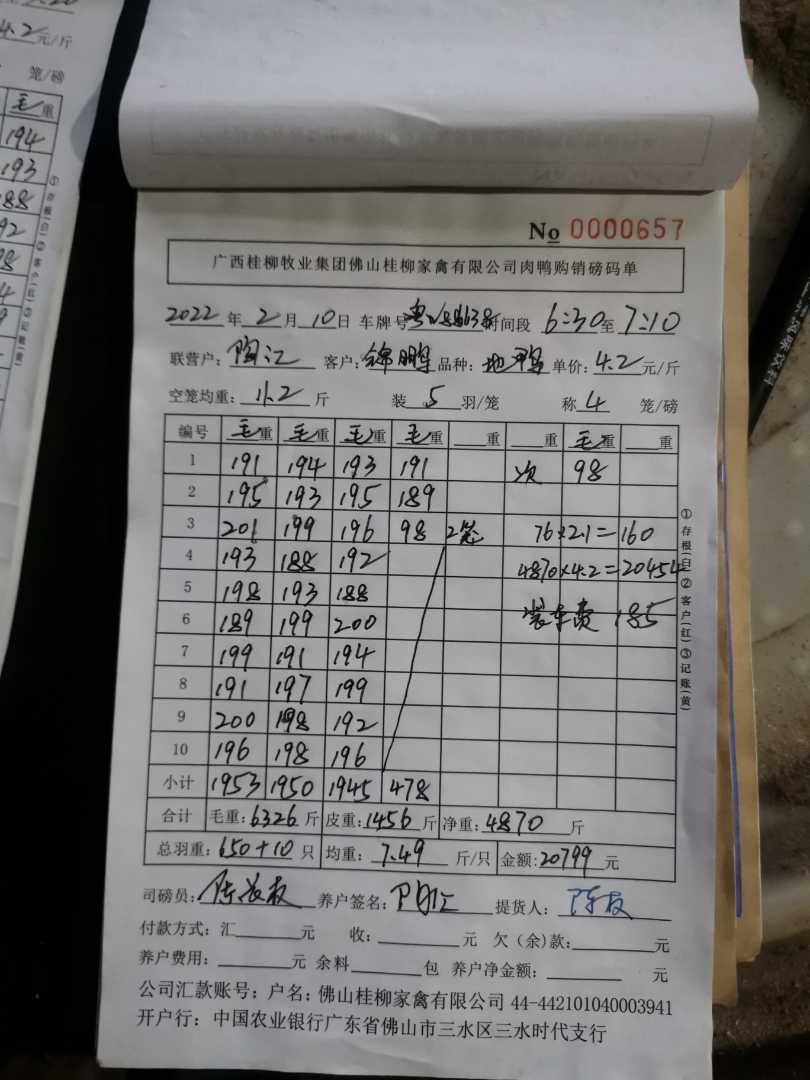 4.2元/斤
笼/磅
毛重
194
193
188
No 0000657
广西桂柳牧业集团佛山桂柳家禽有限公司肉鸭购销磅码单
2022年2月10日 车牌号 时间段 6:30至7:10
联营户: 陶江 客户: 锦鹏 品种: 地鸭 单价: 4.2元/斤
空笼均重: 11.2斤 装5羽/笼 称4笼/磅
编号 毛重 毛重 毛重 毛重 重 重 毛重 重
1 191 194 193 191 次 98
2 195 193 195 189
3 201 199 196 98 2笼 76×2.1=160
4 193 188 192 4870×4.2=20454
5 198 193 188
6 189 199 200 装车费 185
7 199 191 194
8 191 197 199
9 200 198 192
10 196 198 196
小计 1953 1950 1945 478
合计 毛重: 6326斤 皮重: 1456斤 净重: 4870斤
总羽重: 650+10只 均重: 7.49斤/只 金额: 20799元
司磅员: 养户签名: 陶江 提货人:
付款方式: 汇 元 收: 元 欠(余)款: 元
养户费用: 元 余料 包 养户净金额: 元
公司汇款账号: 户名: 佛山桂柳家禽有限公司 44-442101040003941
开户行: 中国农业银行广东省佛山市三水区三水时代支行
①存根(白)②客户(红)③记账(黄)
①存根(白)②客户(红)③记账(黄)